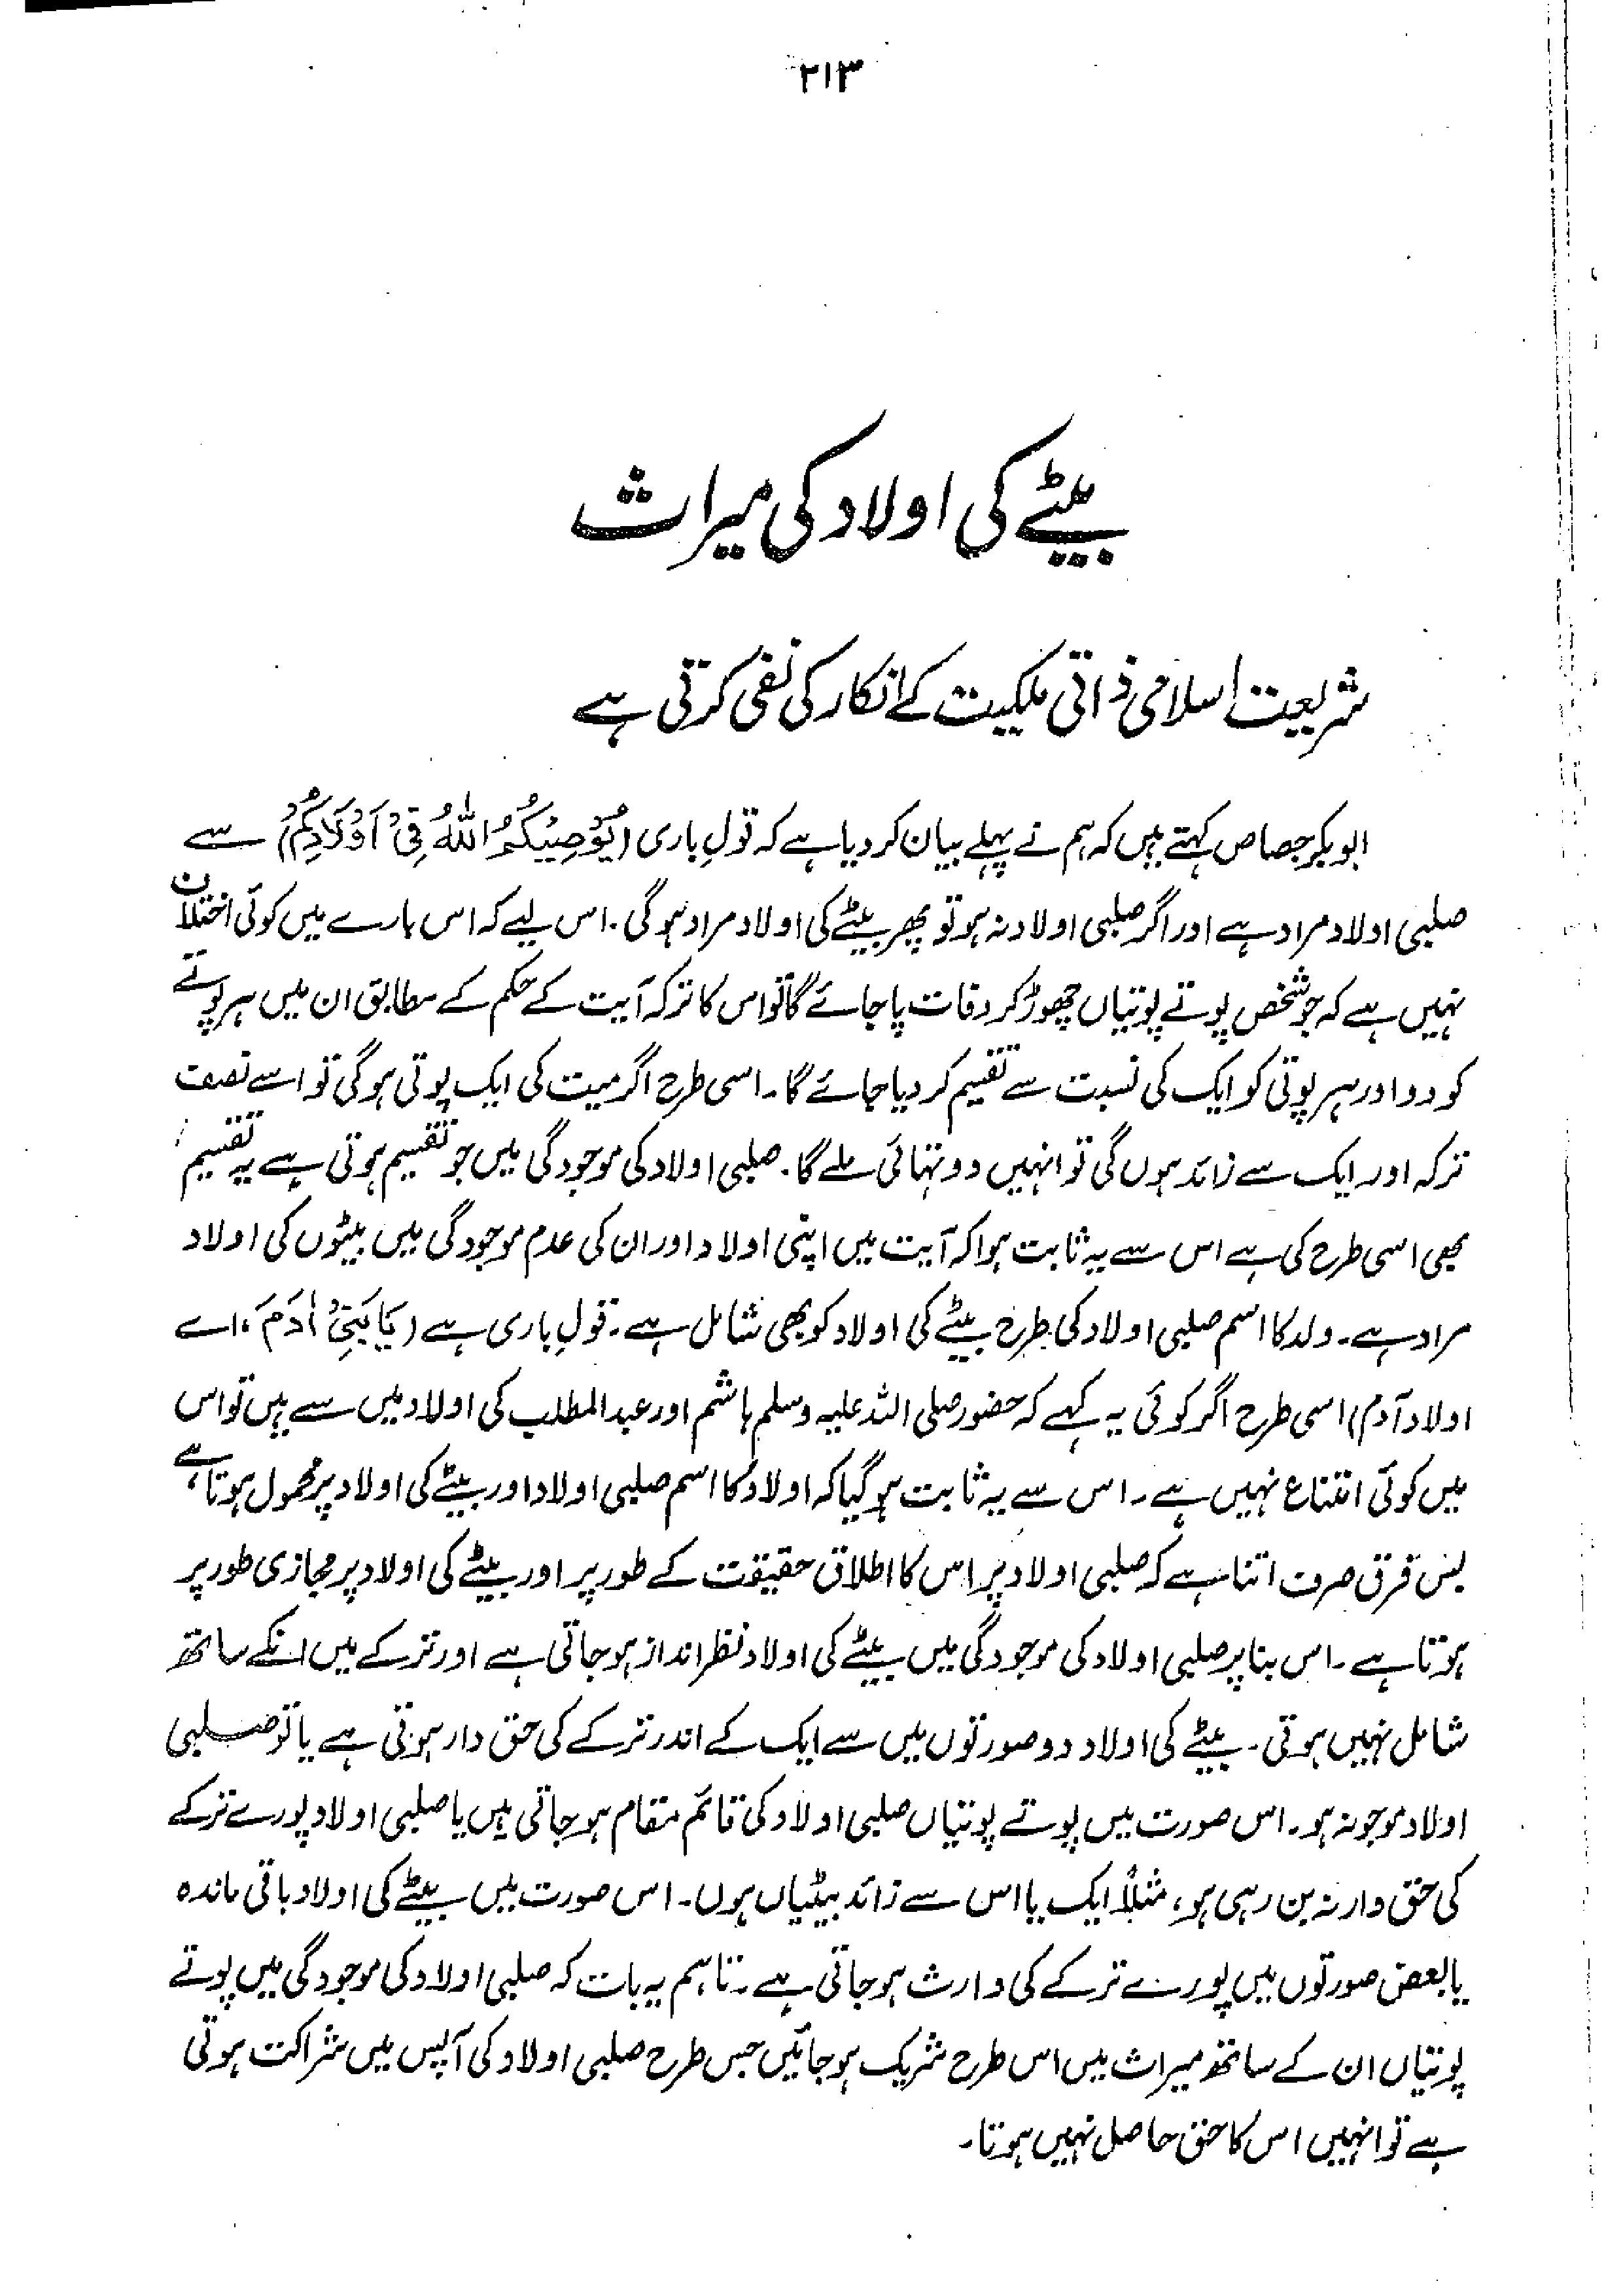 ۲۱۳
بیٹے کی اولاد کی میراث
شریعت اسلامی ذاتی ملکیت کے انکار کی نفی کرتی ہے
ابوبکر جصاص کہتے ہیں کہ ہم نے پہلے بیان کر دیا ہے کہ قولِ باری (یُوْصِیْکُمُ اللّٰهُ فِیْ اَوْلَادِکُمْ) سے
صلبی اولاد مراد ہے اور اگر صلبی اولاد نہ ہو تو پھر بیٹے کی اولاد مراد ہوگی۔ اس لیے کہ اس بارے میں کوئی اختلاف
نہیں ہے کہ جو شخص پوتے پوتیاں چھوڑ کر وفات پا جائے گا تو اس کا ترکہ آیت کے حکم کے مطابق ان میں ہر پوتے
کو دو اور ہر پوتی کو ایک کی نسبت سے تقسیم کر دیا جائے گا۔ اسی طرح اگر میت کی ایک پوتی ہوگی تو اسے نصف
ترکہ اور ایک سے زائد ہوں گی تو انہیں دو تہائی ملے گا۔ صلبی اولاد کی موجودگی میں جو تقسیم ہوتی ہے یہ تقسیم
بھی اسی طرح کی ہے اس سے یہ ثابت ہوا کہ آیت میں اپنی اولاد اور ان کی عدم موجودگی میں بیٹوں کی اولاد
مراد ہے۔ ولد کا اسم صلبی اولاد کی طرح بیٹے کی اولاد کو بھی شامل ہے۔ قولِ باری ہے (یَا بَنِیْ اٰدَمَ، اے
اولاد آدم) اسی طرح اگر کوئی یہ کہے کہ حضور صلی اللہ علیہ وسلم ہاشم اور عبدالمطلب کی اولاد میں سے ہیں تو اس
میں کوئی امتناع نہیں ہے۔ اس سے یہ ثابت ہو گیا کہ اولاد کا اسم صلبی اولاد اور بیٹے کی اولاد پر محمول ہوتا ہے،
بس فرق صرف اتنا ہے کہ صلبی اولاد پر اس کا اطلاق حقیقت کے طور پر اور بیٹے کی اولاد پر مجازی طور پر
ہوتا ہے۔ اس بنا پر صلبی اولاد کی موجودگی میں بیٹے کی اولاد نظر انداز ہو جاتی ہے اور ترکے میں انکے ساتھ
شامل نہیں ہوتی۔ بیٹے کی اولاد دو صورتوں میں سے ایک کے اندر ترکے کی حق دار ہوتی ہے یا تو صلبی
اولاد موجو نہ ہو۔ اس صورت میں پوتے پوتیاں صلبی اولاد کی قائم مقام ہو جاتی ہیں یا صلبی اولاد پورے ترکے
کی حق دار نہ بن رہی ہو، مثلاً ایک یا اس سے زائد بیٹیاں ہوں۔ اس صورت میں بیٹے کی اولاد باقی ماندہ
یا بعض صورتوں میں پورے ترکے کی وارث ہو جاتی ہے۔ تاہم یہ بات کہ صلبی اولاد کی موجودگی میں پوتے
پوتیاں ان کے ساتھ میراث میں اس طرح شریک ہو جائیں جس طرح صلبی اولاد کی آپس میں شراکت ہوتی
ہے تو انہیں اس کا حق حاصل نہیں ہوتا۔